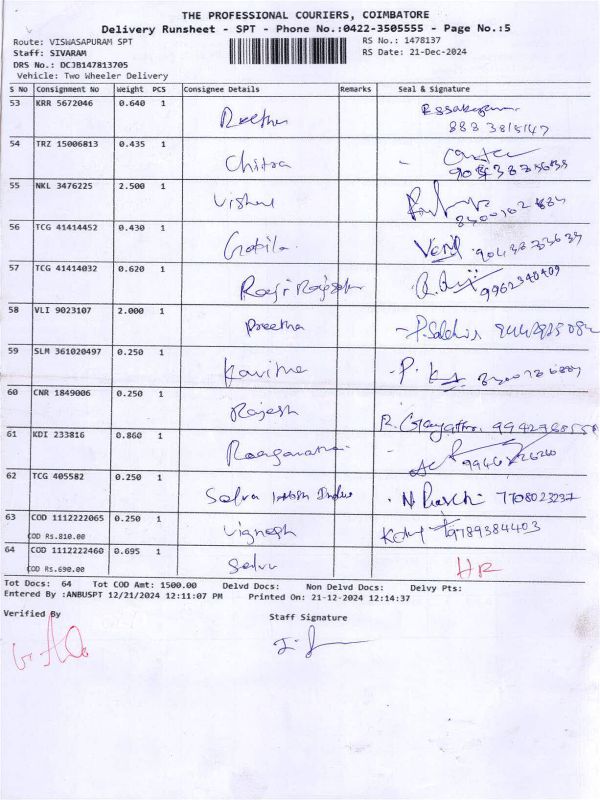 THE PROFESSIONAL COURIERS, COIMBATORE
Delivery Runsheet - SPT - Phone No.:0422-3505555 - Page No.:5
Route: VISWASAPURAM SPT RS No.: 1478137
Staff: SIVARAM RS Date: 21-Dec-2024
DRS No.: DCJB147813705
Vehicle: Two Wheeler Delivery
S No Consignment No Weight PCS Consignee Details Remarks Seal & Signature
53 KRR 5672046 0.640 1 Reetha
54 TRZ 15006813 0.435 1 Chitra -
55 NKL 3476225 2.500 1 Vishnu
56 TCG 41414452 0.430 1 Gopila.
57 TCG 41414032 0.620 1 9962340409
58 VLI 9023107 2.000 1 Preetha
59 SLM 361020497 0.250 1 Kavitha - P.
60 CNR 1849006 0.250 1 Rajesh R. Gayathri
61 KDI 233816 0.860 1
62 TCG 405582 0.250 1 Selva 7708023237
63 COD 1112222065 0.250 1 Vignesh 9789384403
COD Rs.810.00
64 COD 1112222460 0.695 1 Selva HR
COD Rs.690.00
Tot Docs: 64 Tot COD Amt: 1500.00 Delvd Docs: Non Delvd Docs: Delvy Pts:
Entered By :ANBUSPT 12/21/2024 12:11:07 PM Printed On: 21-12-2024 12:14:37
Verified By Staff Signature